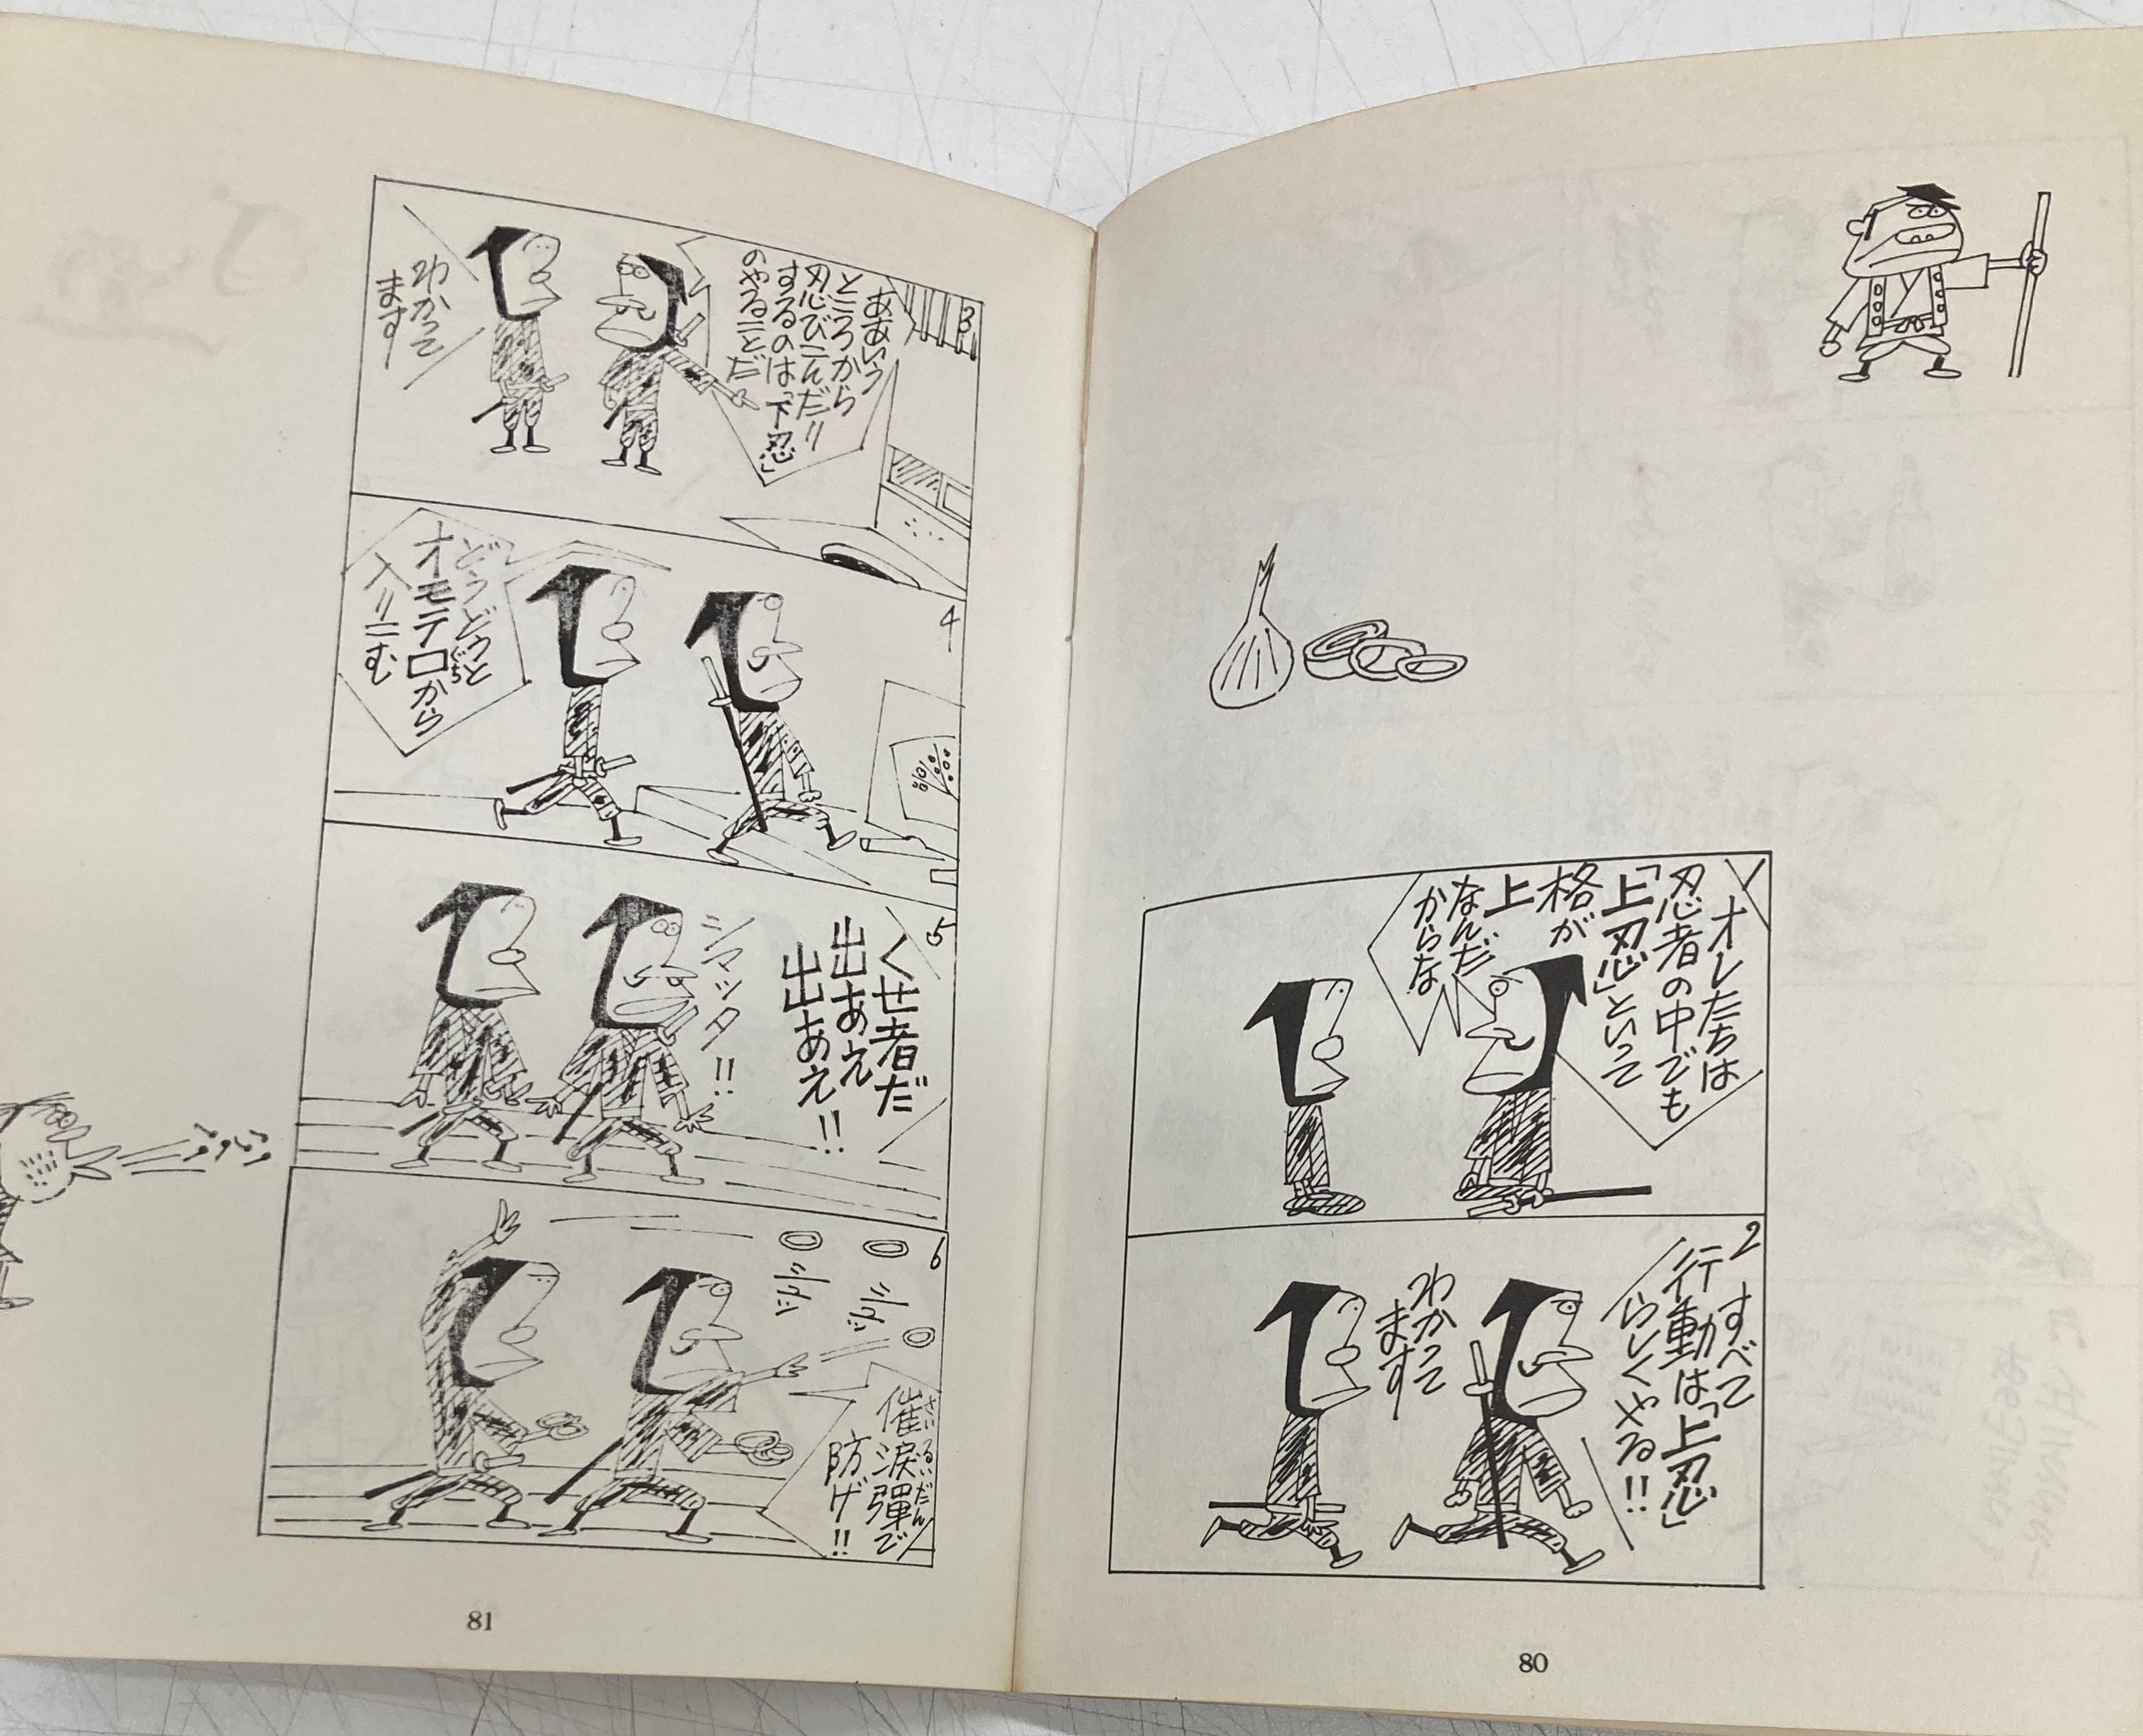 1
オレたちは
忍者の中でも
「上忍」といって
格が
上
なんだ
からな
2
すべて
行動は「上忍」
らしくやる!!
わかって
ます
80
3
ああいう
ところから
忍びこんだり
するのは「下忍」
のやることだ
わかって
ます
4
どうどうと
オモテ口から
ぐち
入りこむ
5
くせ者だ
出あえ
出あえ!!
シマッタ!!
6
催涙弾で
さいるいだん
防げ!!
81